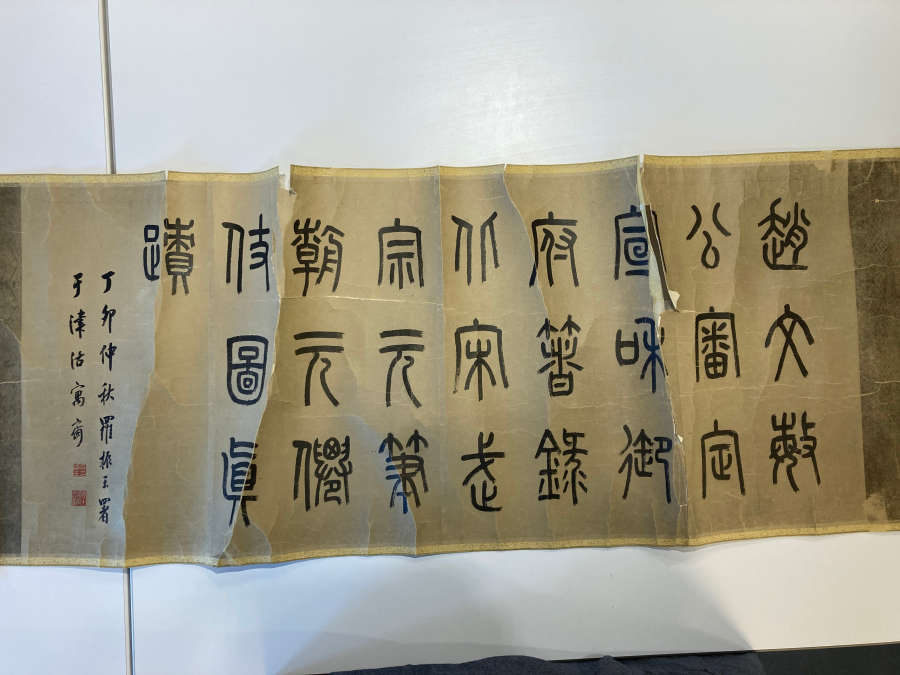 趙文敏
公審定
宣和御
府箸錄
北宋武
宗元筆
朝元僊
仗圖真
蹟
丁卯仲秋羅振玉署
于津沽寓齋